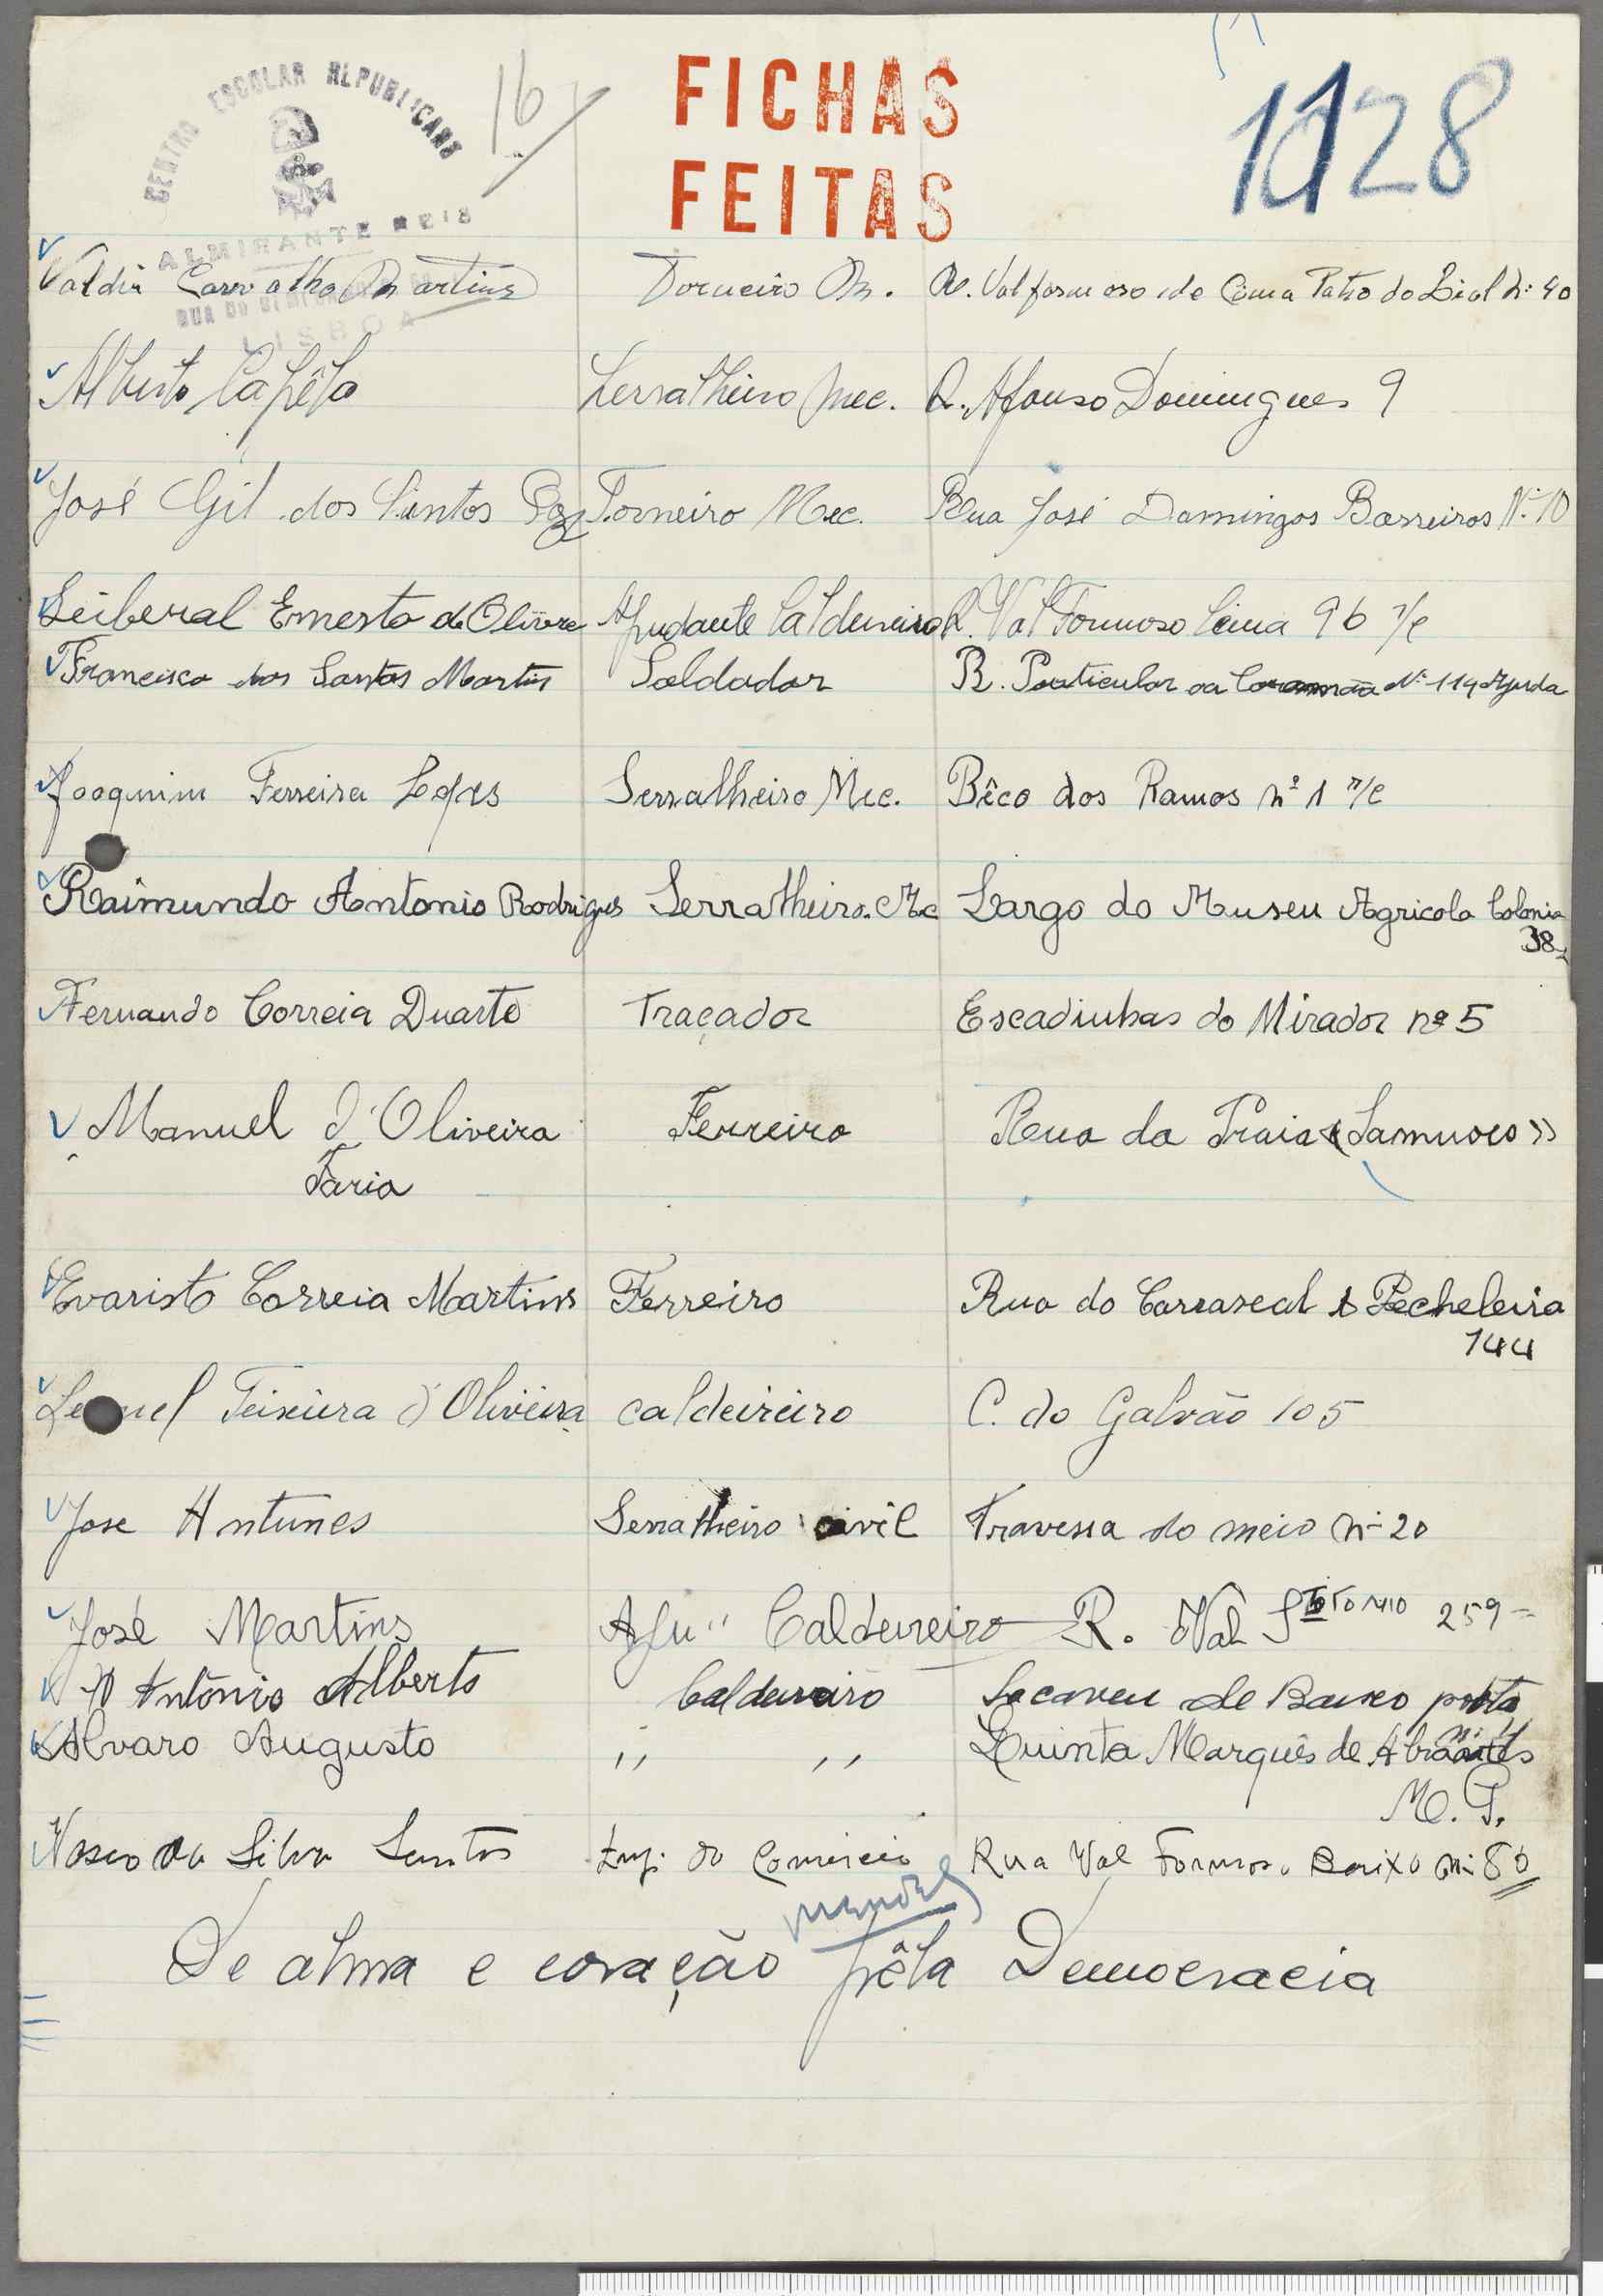 CENTRO ESCOLAR REPUBLICANO
ALMIRANTE REIS
LISBOA
16
FICHAS
FEITAS
1128
Valdir Carvalho Martins Torneiro M. R. Valformoso de Cima Patio do Bial Nº 40
Alberto Capêlo Serralheiro Mec. R. Afonso Domingues 9
José Gil dos Santos Torneiro Mec. Rua José Domingos Barreiros Nº 10
Leiberal Ernesto de Olivera Ajudante Caldeireiro R. Val Formoso Cima 96 r/c
Francisco dos Santos Martins Soldador R. Particular Nº 114 Ajuda
Joaquim Ferreira Lopes Serralheiro Mec. Bêco dos Ramos nº 1 r/c
Raimundo Antonio Rodrigues Serralheiro. Mc Largo do Museu Agricola Colonia
38
Fernando Correia Duarte Traçador Escadinhas do Mirador nº 5
Manuel d'Oliveira Ferreiro Rua da Praia «Samouco»
Faria
Evaristo Correia Martins Ferreiro Rua do Carrascal á Pecheleira
144
Leonel Teixeira d'Oliveira caldeireiro C. do Galvão 105
Jose Antunes Serralheiro civil Travessa do meio nº 20
José Martins Aju" Caldeireiro R. Val Stº António 259
António Alberto Caldeireiro Sacavem de Baixo porta
nº 4
Alvaro Augusto " " Quinta Marquês de Abrantes
M. P.
Vasco da Silva Santos Emp. do Comércio Rua Val Formoso Baixo nº 80
De alma e coração pêla Democracia